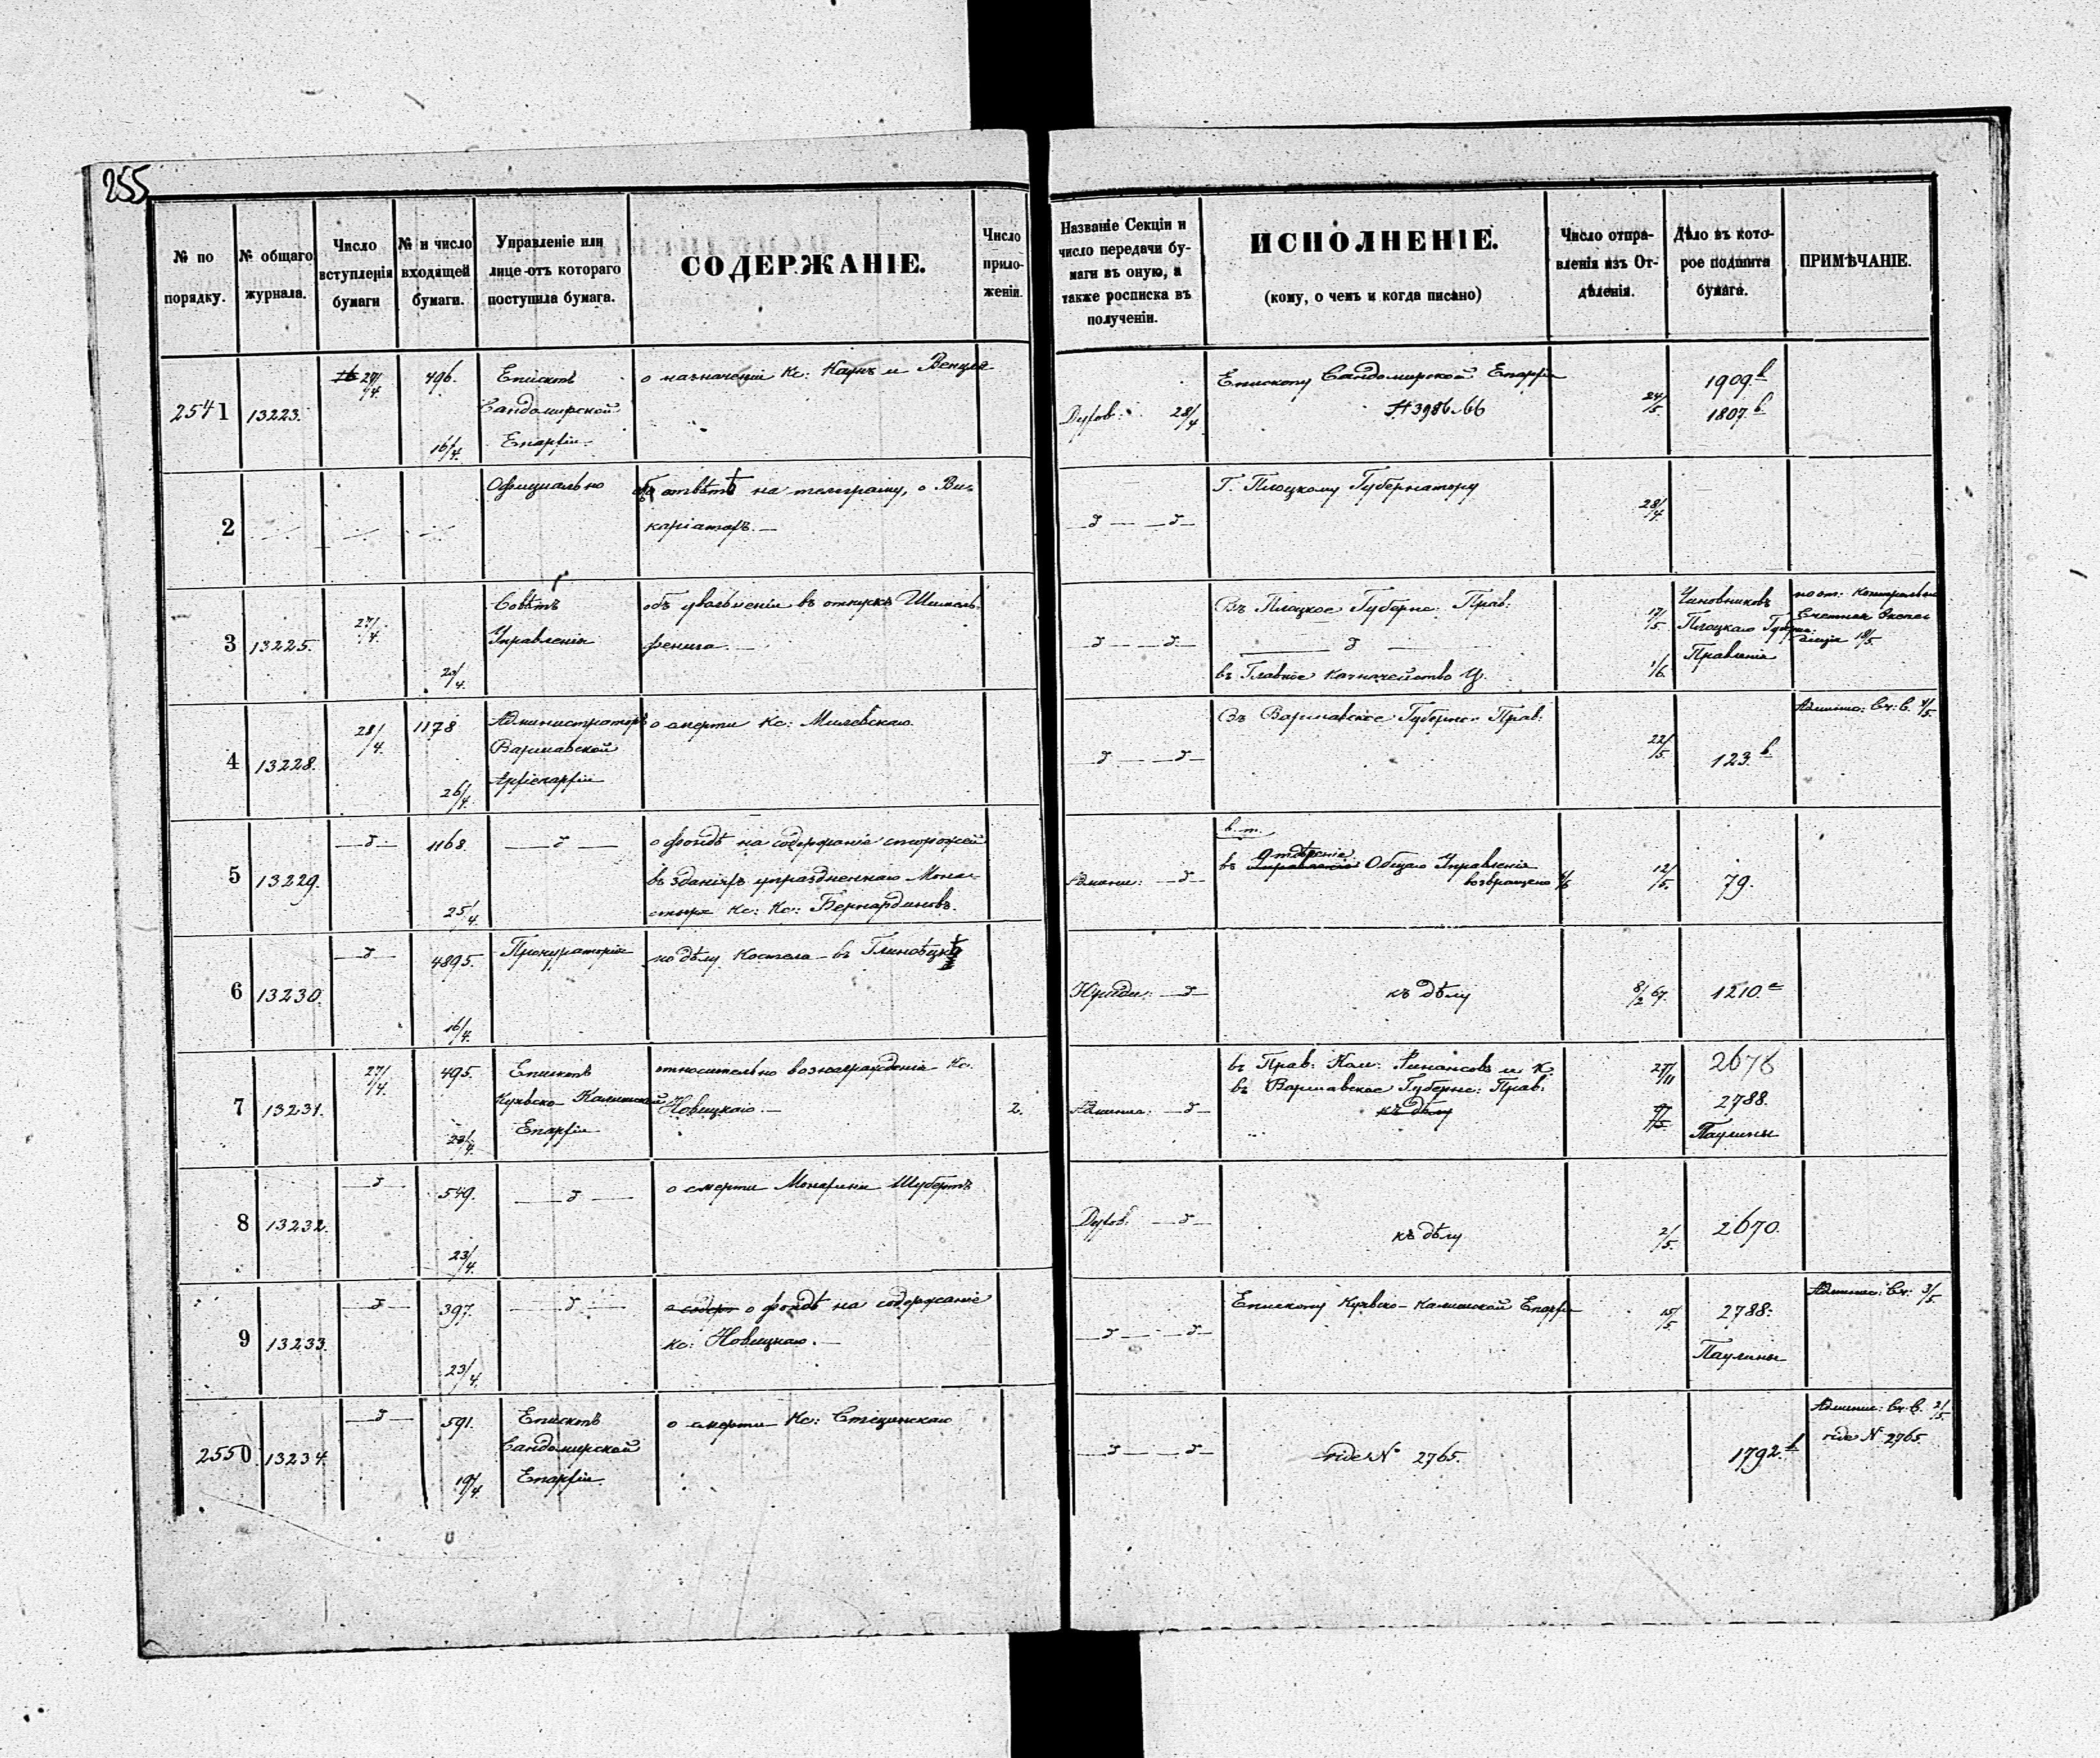 255
№ по порядку.
№ общаго журнала.
Число вступленія бумаги
№ и число входящей бумаги.
Управленіе или лице отъ котораго поступила бумага.
СОДЕРЖАНІЕ.
Число приложеніи.
Названіе Секціи и число передачи бумаги въ оную, а также росписка въ полученіи.
ИСПОЛНЕНІЕ.
(кому, о чемъ и когда писано)
Число отправленія изъ Отдѣленія.
Дѣло въ которое подшита бумага.
ПРИМѢЧАНІЕ.
2541 13223. 27/4. 496. 16/4.
Епископъ
Сандомирской
Епархіи
о назначеніи Кс: Каунъ и Венцля
Духов. 28/4
Епископу Сандомирской Епархіи
№ 3986.66
24/5.
1909 b
1807. b
2
Официально
отвѣтъ на телеграму, о Ви-
каріатахъ.
Г. Плоцкому Губернатору
28/4.
3 13225. 27/4. 20/4.
Совѣтъ
Управленія
объ увольненіи въ отпускъ Шимель-
фенига
Въ Плоцкое Губернс: Прав:
въ Главное Казначейство Ц.
17/5.
1/6.
Чиновниковъ
Плоцкаго Губерн:
Правленія
по от: Контрольно
Счетная Экспе-
диція 18/5.
4 13228. 28/4. 1178 26/4.
Администраторъ
Варшавской
Архіепархіи
о смерти Кс: Милевскаго.
Въ Варшавское Губернс: Прав:
22/5.
123. b
5 13229. 1168. 25/4
о фондѣ на содержаніе сторожей
въ зданіяхъ упраздненнаго Мона-
стыря Кс: Кс: Бернардиновъ.
Админи:
в. т.
въ Отдѣленіе Общаго Управленія
возвращено
12/5.
79.
6 13230. 4895. 16/4.
Прокураторія
по дѣлу Костела въ Глиновецкѣ
Юриди:
къ дѣлу
8/2 67.
1210. c
7 13231. 27/4. 495. 23/4.
Епископъ
Куявско-Калишской
Епархіи
относительно вознагражденія Кс.
Новицкаго.
2.
Админи:
въ Прав: Ком: Финансовъ и К.
въ Варшавское Губернс: Прав:
къ дѣлу
27/11
2678
2788.
Паулины
8 13232. 549. 23/4.
о смерти Монахини Шубертъ
Духов.
къ дѣлу
2/5.
2670.
9 13233. 397. 23/4.
о фондѣ на содержаніе
кс: Новицкаго.
Епископу Куявско-Калишской Епархіи
15/5
2788.
Паулины
Админис: Сч: 3/5.
2550 13234. 591. 19/4.
Епископъ
Сандомирской
Епархіи
о смерти Кс: Стецинскаго
vide № 2765.
1792. d
vide № 2765.